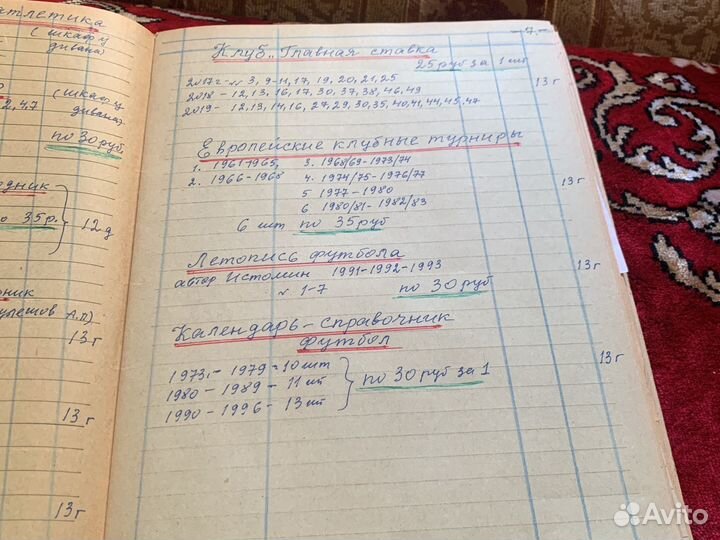 атлетика
(шкаф у
дивана)
(шкаф у
2,47
дивана)
по 30 руб.
35 р.
12 д
А.П)
13 г
13 г
13 г
-7.-
Клуб „Главная ставка
25 руб за 1 шт
2017г - № 3, 9-11, 17, 19, 20, 21, 25
13 г
2018 - 12, 13, 16, 17, 30, 37, 38, 46, 49
2019 - 12, 13, 14, 16, 27, 29, 30, 35, 40, 41, 44, 45, 47
Европейские клубные турниры
1. 1961-1965, 3. 1968/69-1973/74
2. 1966-1968 4. 1974/75-1976/77
5 1977-1980
13 г
6. 1980/81-1982/83
6 шт по 35 руб
Летопись футбола
автор Истомин 1991-1992-1993
13 г
№ 1-7 по 30 руб
Календарь-справочник
футбол
1973г. - 1979 = 10 шт
1980 - 1989 - 11 шт
1990 - 1996 - 13 шт
по 30 руб за 1
13 г
Avito